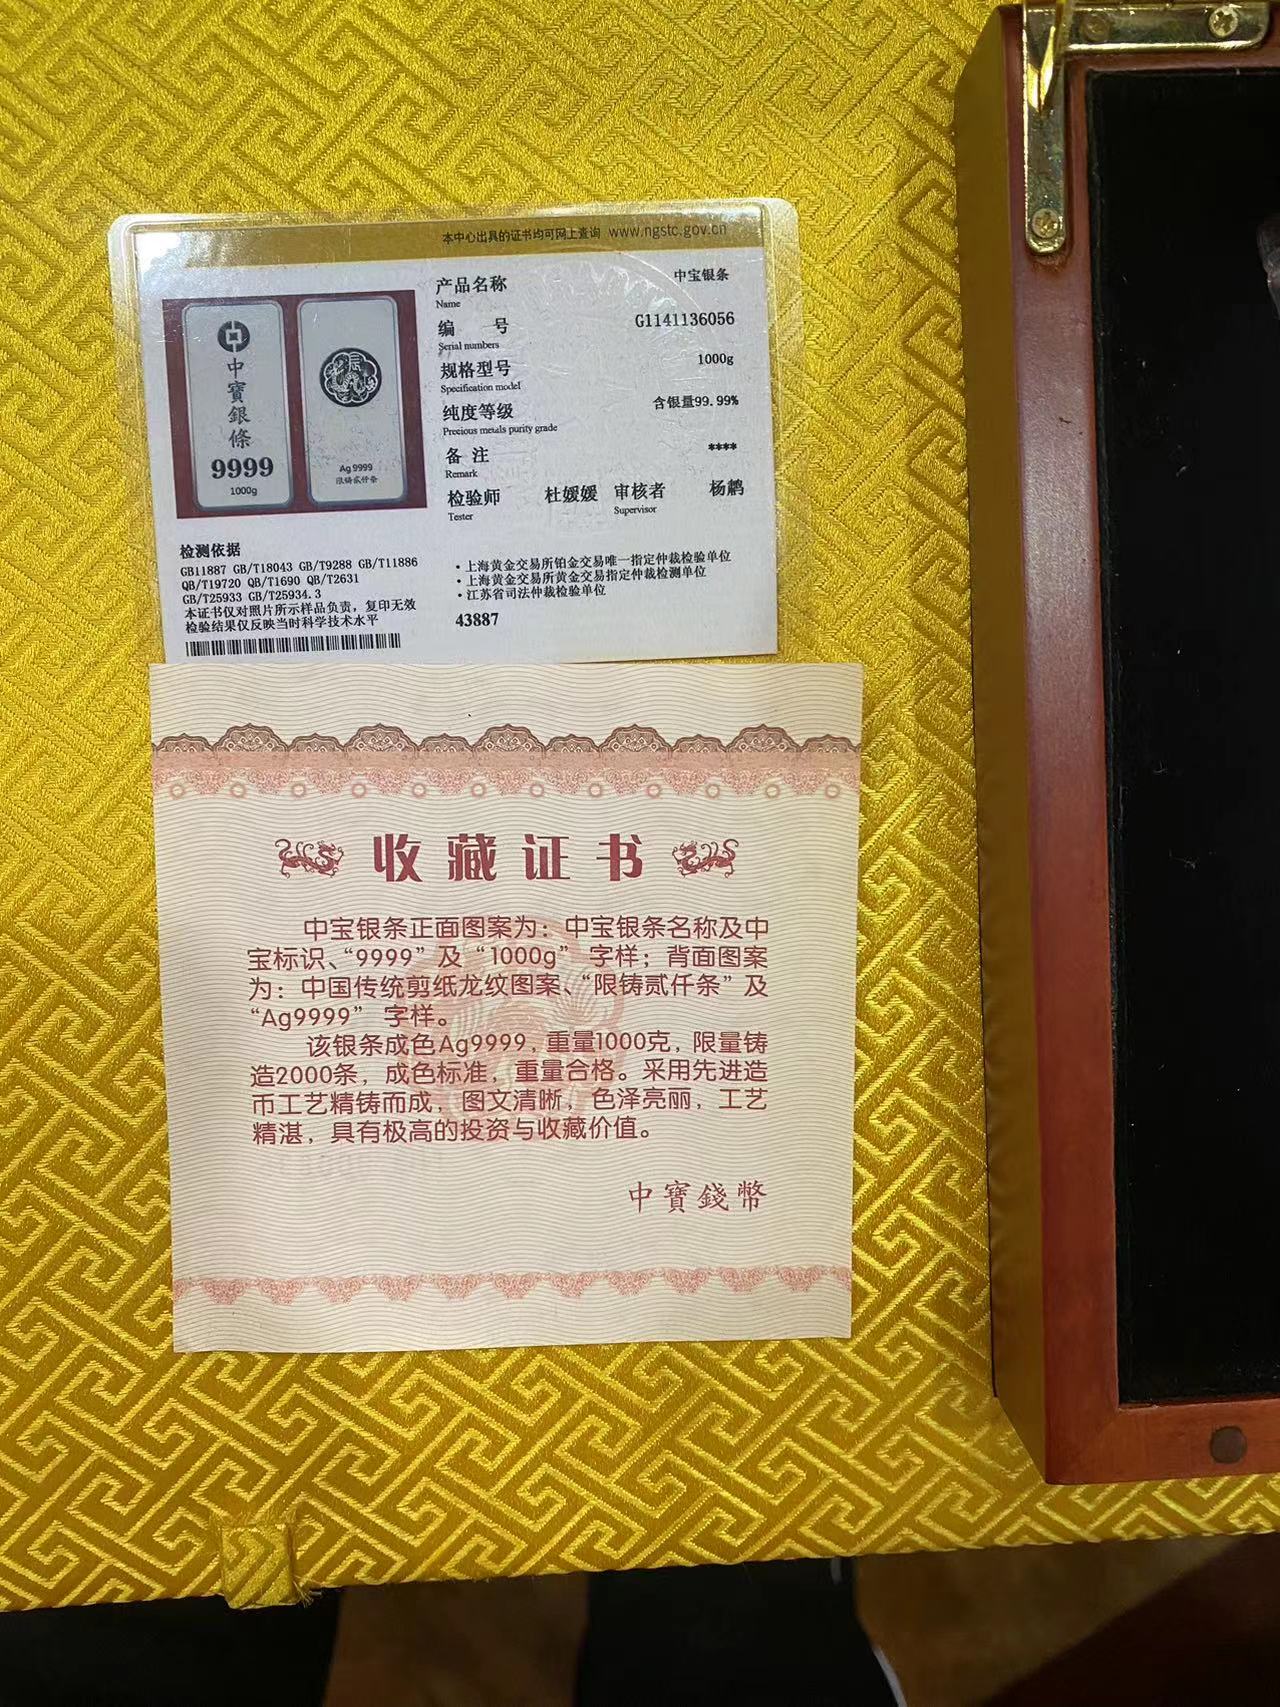 本中心出具的证书均可网上查询 www.ngstc.gov.cn
中
寶
銀
條
9999
1000g
辰
Ag 9999
限铸贰仟条
产品名称 中宝银条
Name
编 号 G1141136056
Serial numbers
规格型号 1000g
Specification model
纯度等级 含银量99.99%
Precious metals purity grade
备 注 ****
Remark
检验师 杜媛媛 审核者 杨鹔
Tester Supervisor
检测依据
GB11887 GB/T18043 GB/T9288 GB/T11886
QB/T19720 QB/T1690 QB/T2631
GB/T25933 GB/T25934.3
本证书仅对照片所示样品负责，复印无效
检验结果仅反映当时科学技术水平
• 上海黄金交易所铂金交易唯一指定仲裁检验单位
• 上海黄金交易所黄金交易指定仲裁检测单位
• 江苏省司法仲裁检验单位
43887
收藏证书
中宝银条正面图案为：中宝银条名称及中
宝标识、“9999”及“1000g”字样；背面图案
为：中国传统剪纸龙纹图案、“限铸贰仟条”及
“Ag9999”字样。
该银条成色Ag9999，重量1000克，限量铸
造2000条，成色标准，重量合格。采用先进造
币工艺精铸而成，图文清晰，色泽亮丽，工艺
精湛，具有极高的投资与收藏价值。
中寶錢幣